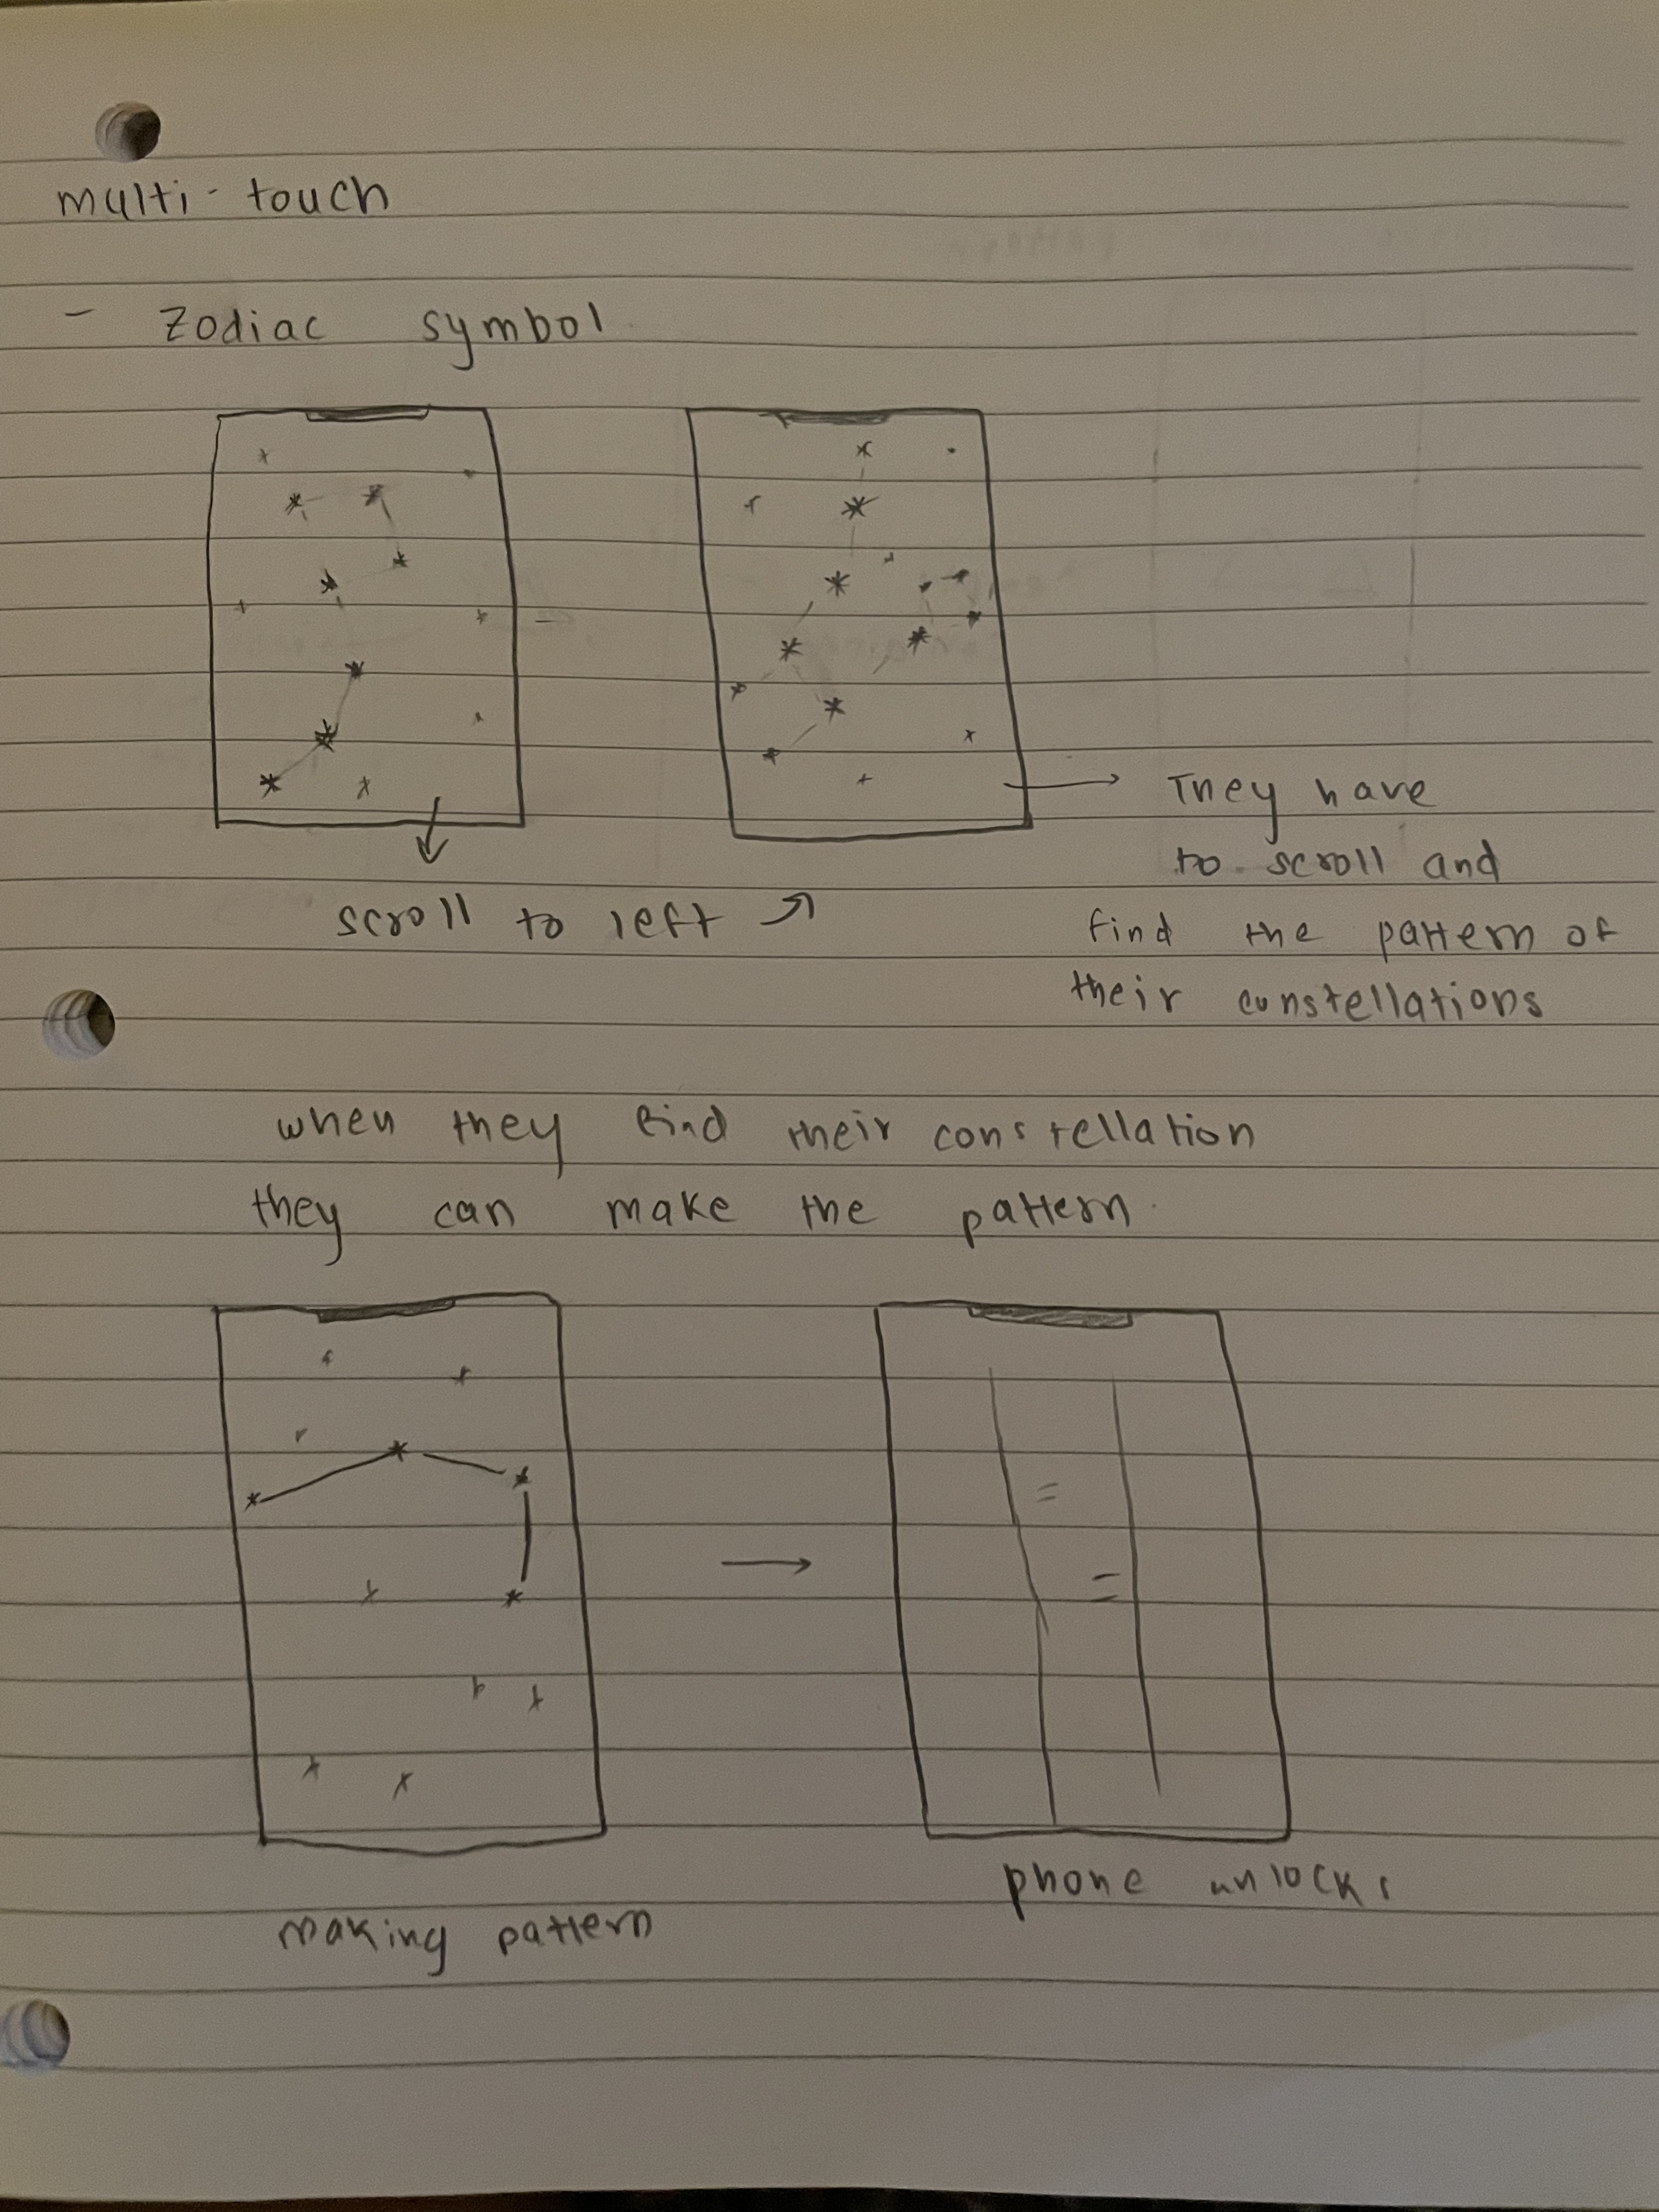 multi-touch
- Zodiac symbol
They have
to scroll and
scroll to left
find the pattern of
their constellations
when they find their constellation
they can make the pattern.
making pattern
phone unlocks